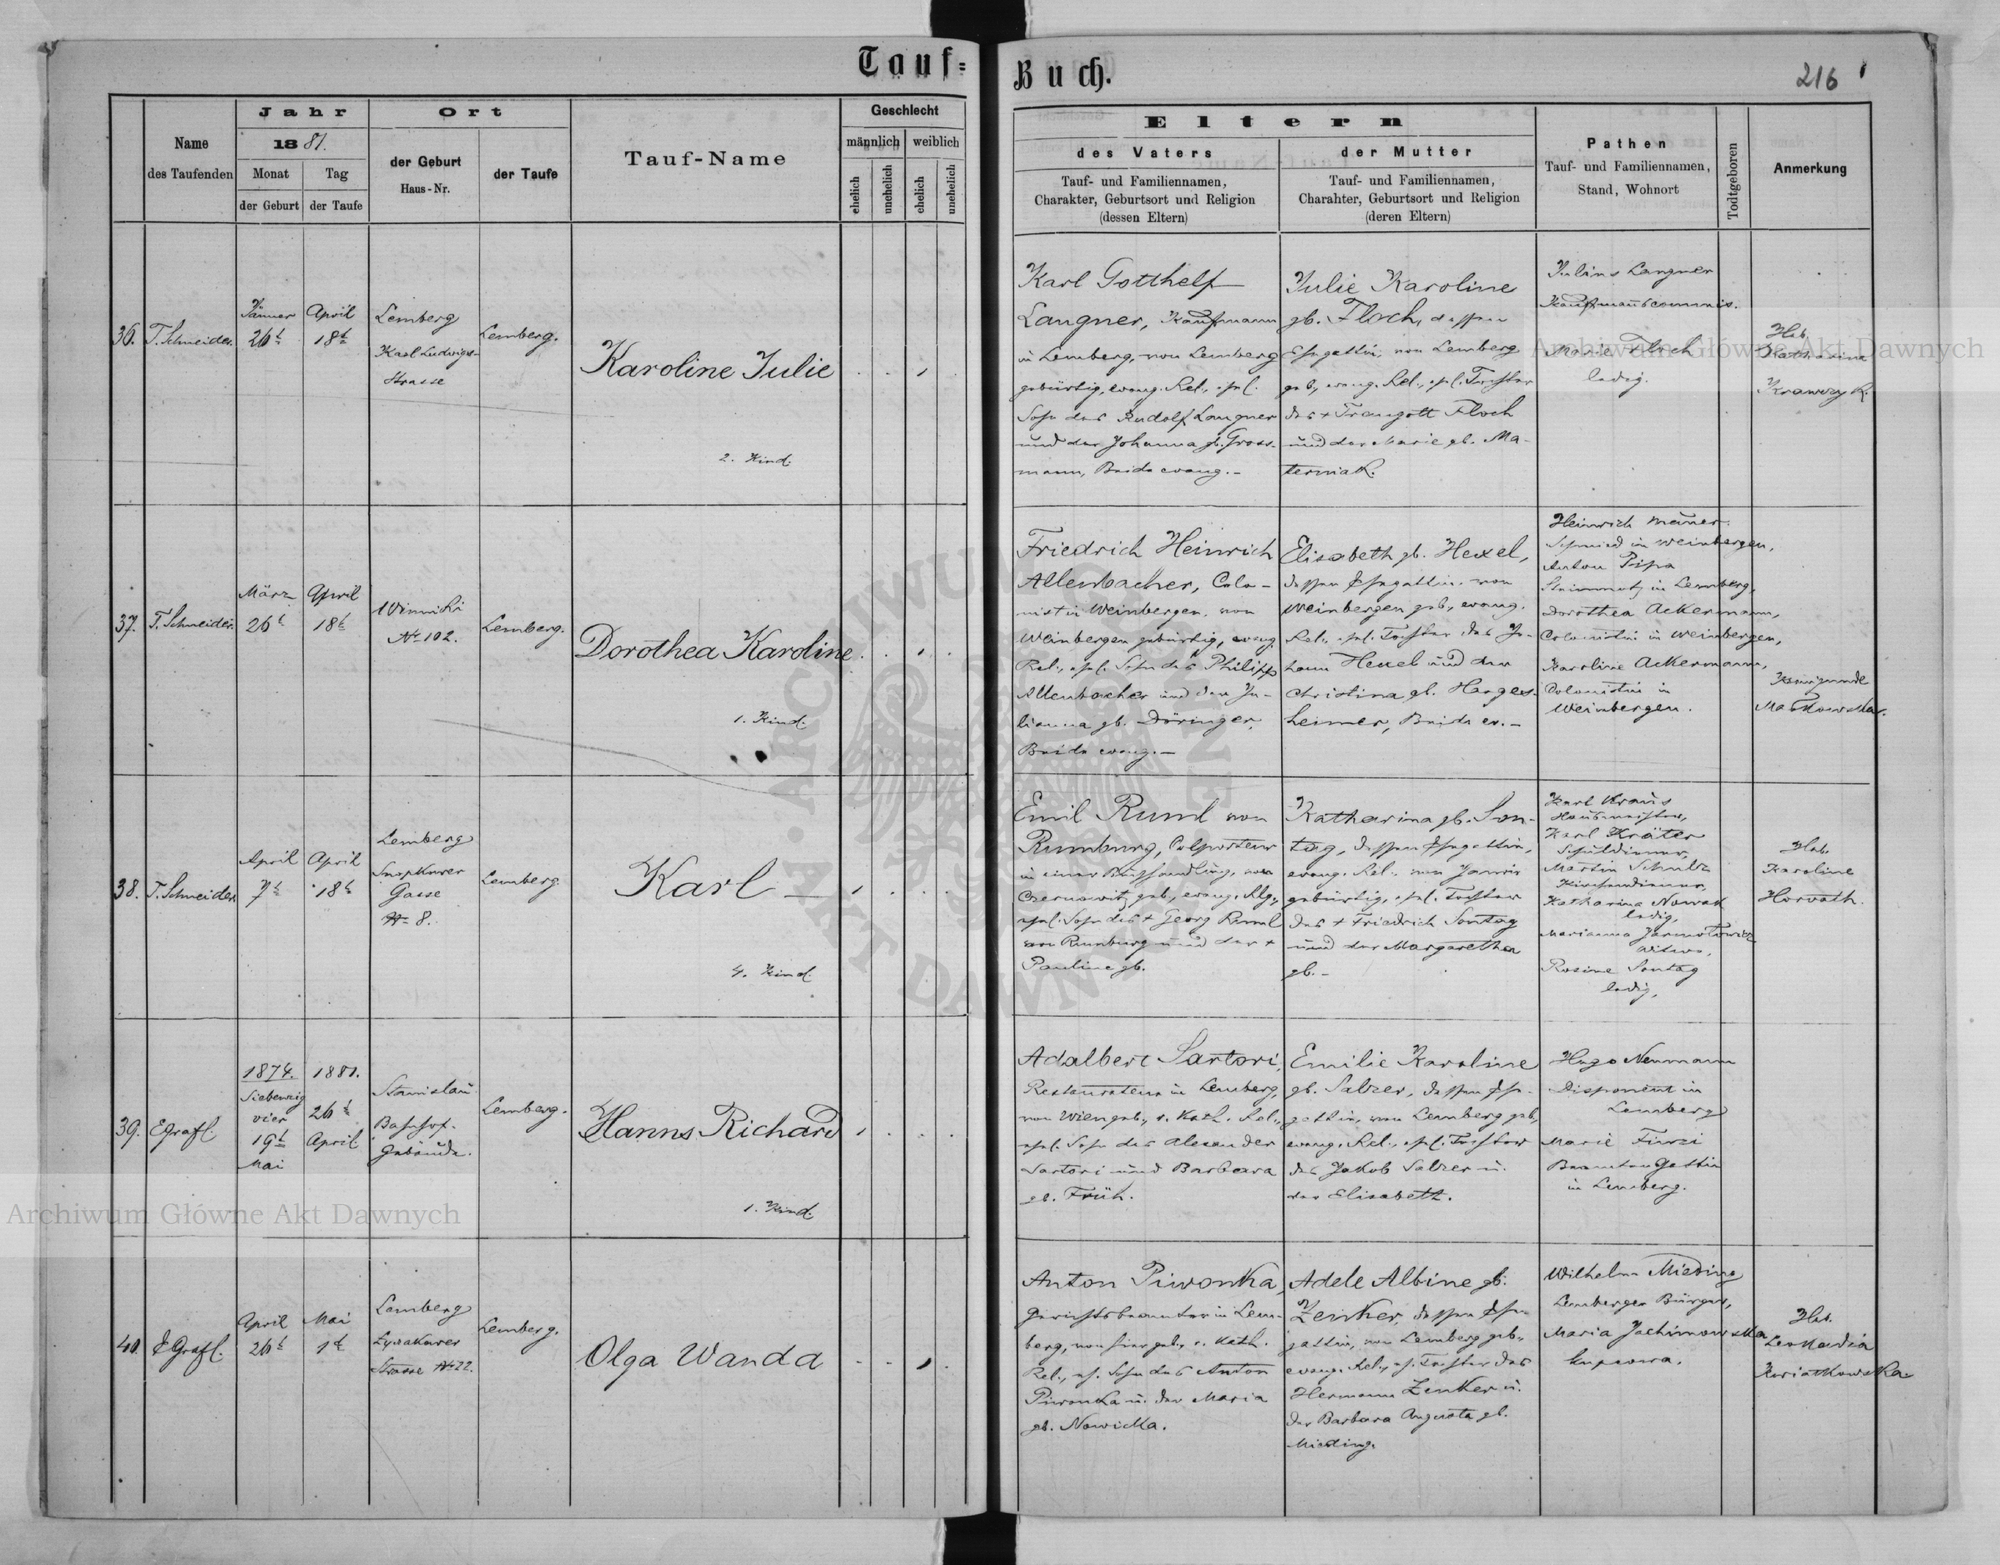 Tauf=
Buch.
216
Name
des Taufenden
Jahr
1881.
Monat
der Geburt
Tag
der Taufe
Ort
der Geburt
Haus-Nr.
der Taufe
Tauf-Name
Geschlecht
männlich
weiblich
ehelich
unehelich
ehelich
unehelich
Eltern
des Vaters
Tauf- und Familiennamen,
Charakter, Geburtsort und Religion
(dessen Eltern)
der Mutter
Tauf- und Familiennamen,
Charahter, Geburtsort und Religion
(deren Eltern)
Pathen
Tauf- und Familiennamen,
Stand, Wohnort
Todtgeboren
Anmerkung
36.
T. Schneider.
Jänner
26t
April
18t
Lemberg
Karl Ludwigs-
Strasse
Lemberg.
Karoline Julie
2. Kind.
Karl Gotthelf
Langner, Kaufmann
in Lemberg, von Lemberg
gebürtig, evang. Rel., ehel.
Sohn des Rudolf Langner
und der Johanna gb. Gross-
mann, Beide evang. -
Julie Karoline
gb. Floch, dessen
Ehegattin, von Lemberg
geb., evang. Rel., ehel. Tochter
des + Traugott Floch
und der Marie gb. Ma-
terniak.
Julius Langner
Kaufmannscommis.
Marie Floch
ledig.
Heb.
Katharina
Krawczyk.
37.
T. Schneider.
März
26t
April
18t
Winniki
Nr 102.
Lemberg.
Dorothea Karoline
1. Kind.
Friedrich Heinrich
Allenbacher, Colo-
nist in Weinbergen, von
Weinbergen gebürtig, evang.
Rel., ehel. Sohn des Philipp
Allenbacher und der Ju-
lianna gb. Döringer,
Beide evang. -
Elisabeth gb. Hexel,
dessen Ehegattin, von
Weinbergen geb., evang.
Rel., ehel. Tochter des Jo-
hann Hexel und der
Christina gb. Harges-
heimer, Beide ev. -
Heinrich
Schmied in Weinbergen,
Anton Pipa
Steinmetz in Lemberg,
Dorothea Ackermann,
Colonistin in Weinbergen,
Karoline Ackermann,
Colonistin in
Weinbergen.
Kunigunde
38.
T. Schneider.
April
7t
April
18t
Lemberg
Snopkower
Gasse
Nr 8.
Lemberg
Karl
4. Kind
Emil Ruml von
Rumburg, Colporteur
in einer Buchhandlung, von
Czernowitz geb., evang. Rlg.,
ehel. Sohn des + Georg Ruml
von Rumburg und der +
Pauline gb.
Katharina gb. Son-
tag, dessen Ehegattin,
evang. Rel., von
gebürtig, ehel. Tochter
des + Friedrich Sontag
und der Margaretha
gb. -
Karl Kraus
Hausmeister,
Karl Kräter
Schuldiener,
Martin Schultz
Kirchendiener,
Katharina Nowak
ledig,
Marianna
Witwe,
Rosine Sontag
ledig,
Heb.
Karoline
Horvath.
39.
EGrafl.
1874.
Siebenzig
vier
19t
Mai
1881.
26t
April
Stanislau
Bahnhof-
Gebäude.
Lemberg.
Hanns Richard
1. Kind.
Adalbert Sartori,
Restaurateur in Lemberg,
von Wien geb., r. kath. Rel.,
ehel. Sohn des Alexander
Sartori und Barbara
gb. Früh.
Emilie Karoline
gb. Salzer, dessen Ehe-
gattin, von Lemberg geb.,
evang. Rel., ehel. Tochter
des Jakob Salzer u.
der Elisabeth.
Hugo Neumann
Disponent in
Lemberg
Marie
Beamten Gattin
in Lemberg.
40.
EGrafl.
April
26t
Mai
1t
Lemberg
Lyczakower
Strasse Nr 22.
Lemberg.
Olga Wanda
Anton Piwonka,
Gerichtsbeamter in Lem-
berg, von hier geb., r. kath.
Rel., eh. Sohn des Anton
Piwonka u. der Maria
gb. Nowicka.
Adele Albine gb.
Zenker, dessen Ehe-
gattin, von Lemberg geb.,
evang. Rel., eh. Tochter des
Hermann Zenker u.
der Barbara Augusta gb.
Mieding.
Wilhelm Mieding
Lemberger Bürger,
Maria Jachimowska
Heb.
Leokadia
Kwiatkowska
Archiwum Główne Akt Dawnych
Archiwum Główne Akt Dawnych
ARCHIWUM GŁÓWNE AKT DAWNYCH